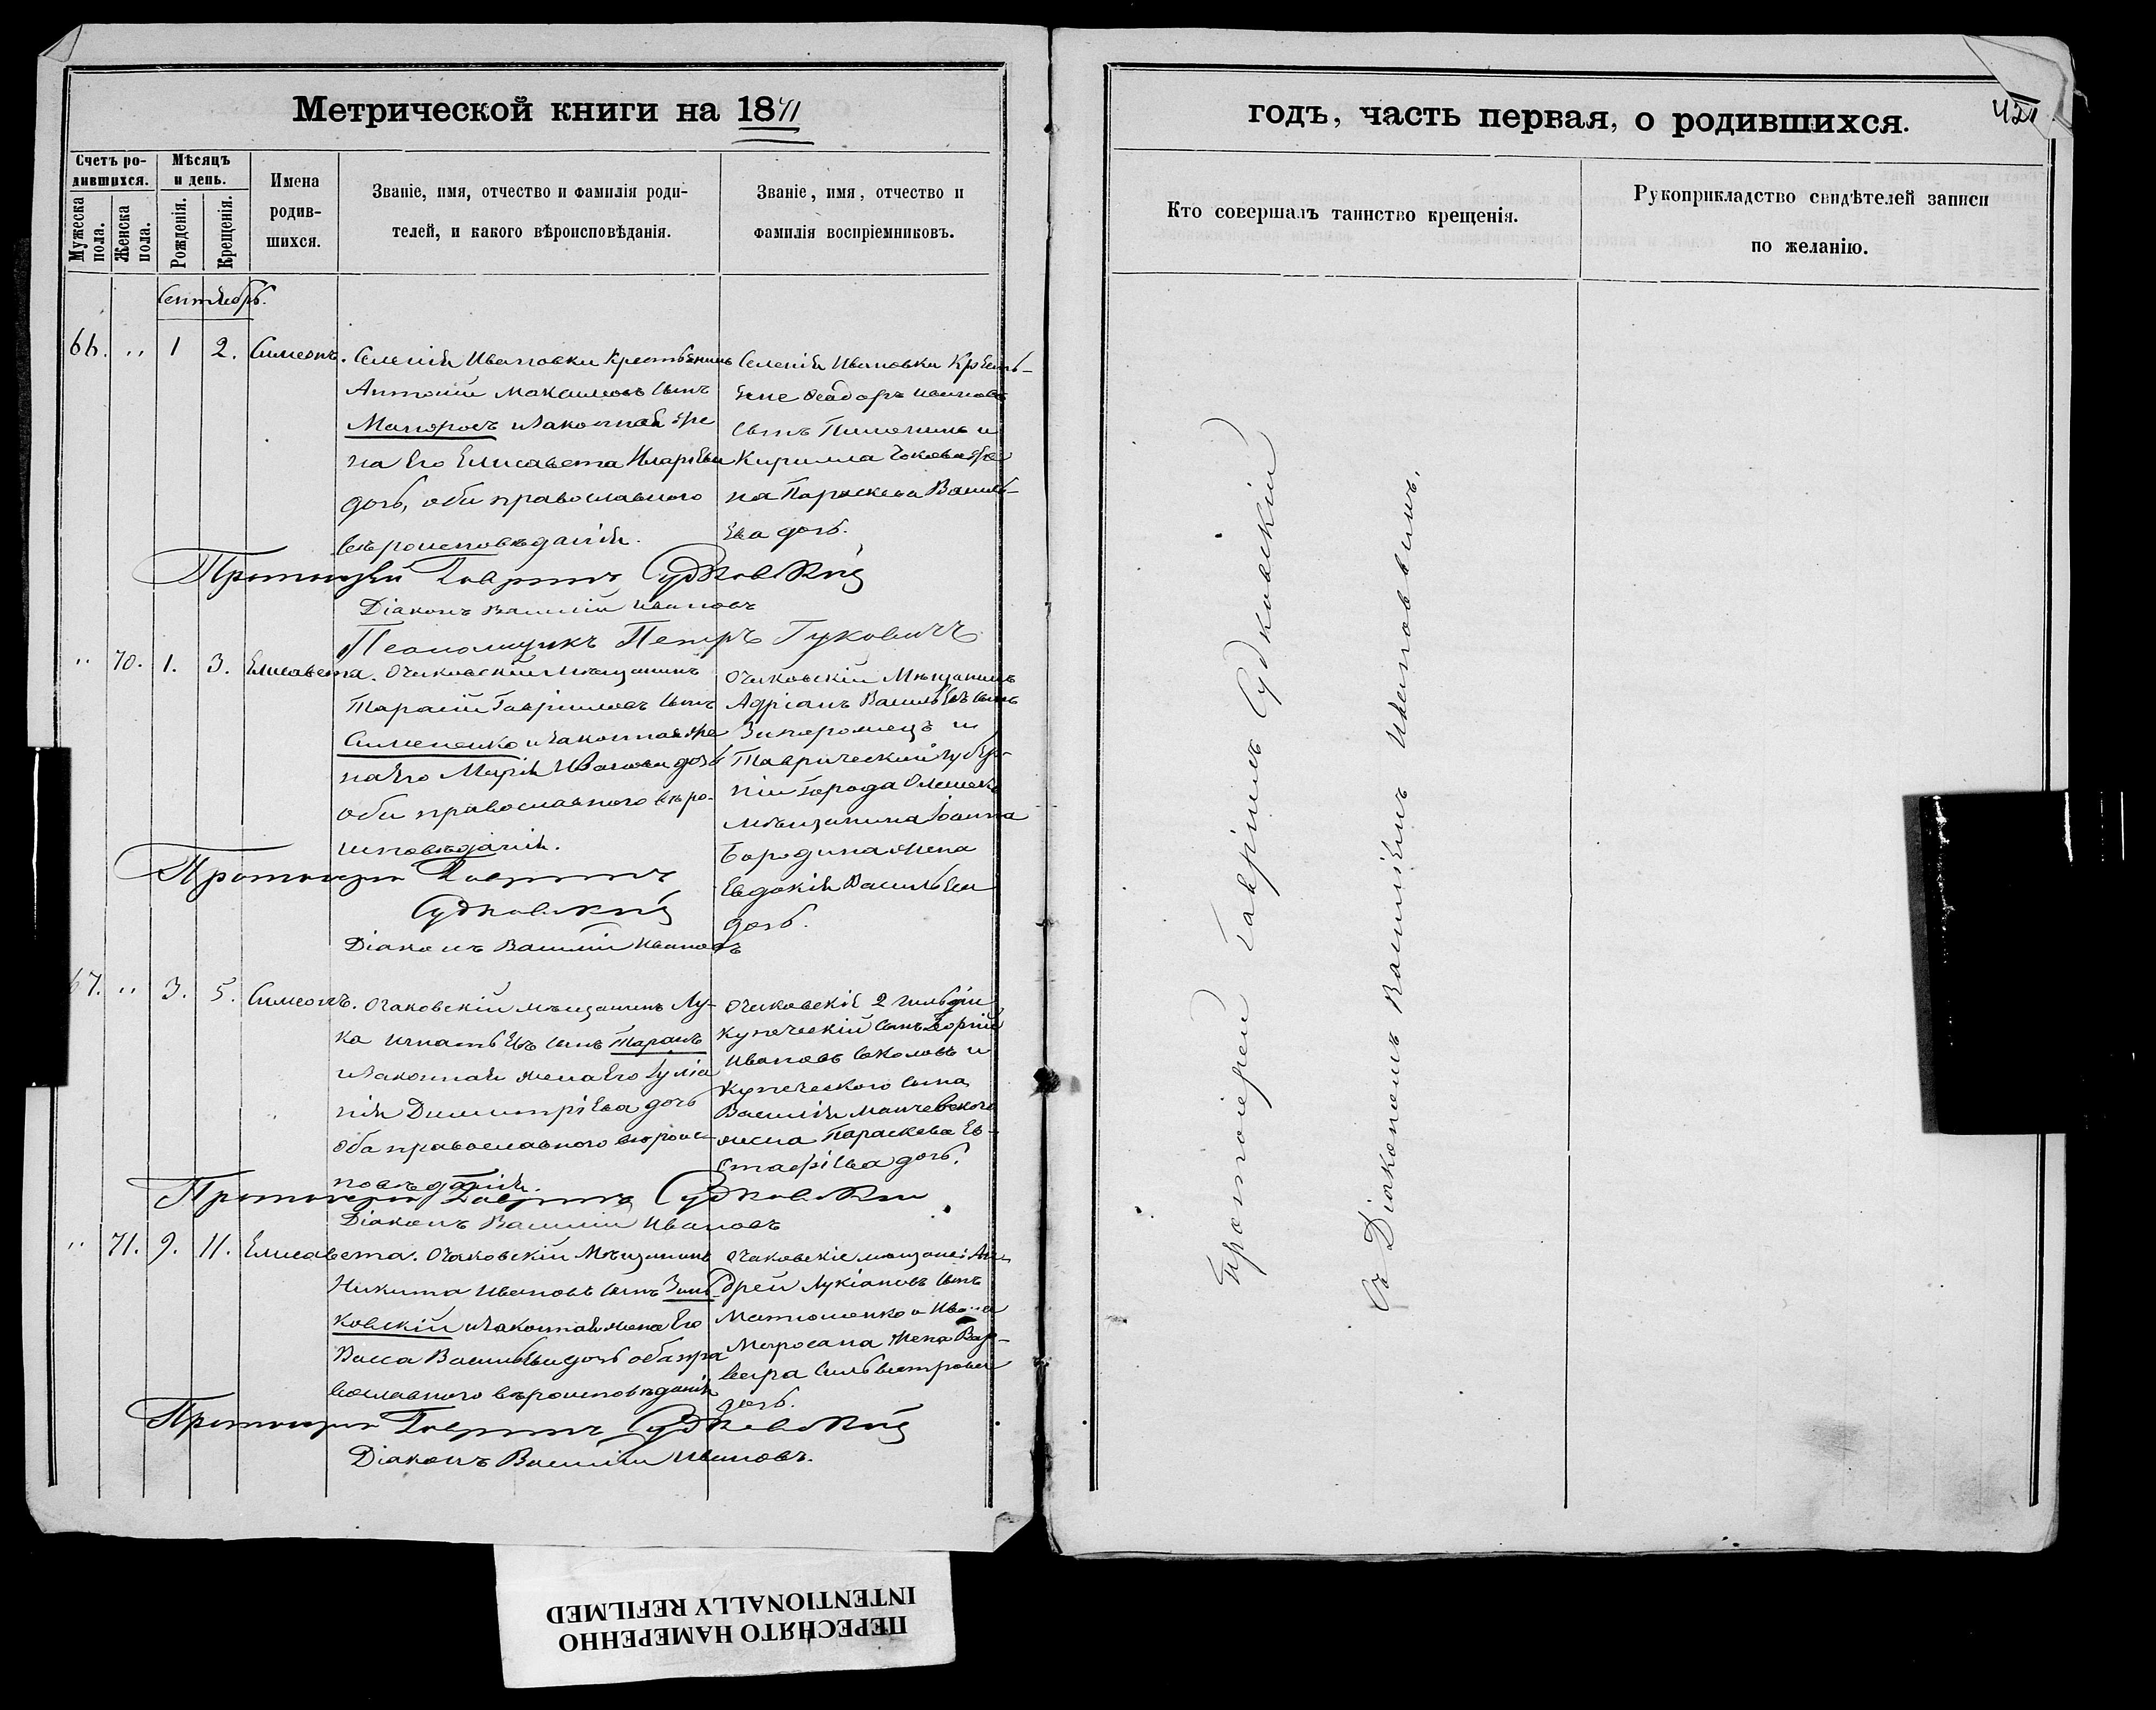 Метрической книги на 1871
Счетъ ро-
дившихся.
Мѣсяцъ
и день.
Мужеска
пола.
Женска
пола.
Рожденія.
Крещенія.
Имена
родив-
шихся.
Званіе, имя, отчество и фамилія роди-
телей, и какого вѣроисповѣданія.
Званіе, имя, отчество и
фамилія воспріемниковъ.
Сентябрь.
66. „ 1 2. Симеонъ. Селенія Ивановки крестьянинъ
Антоній Максимовъ сынъ
и законная же
на его Елисавета
дочь, оба православного
вѣроисповѣданія.
Селенія Ивановки Кресть-
яне Феодоръ Ивановъ
сынъ и
Кирилла же
на Параскева Василь-
ева дочь.
Протоіерей Гавріилъ Судковскій
Діаконъ Василій Ивановъ
Псаломщикъ Петръ Гуковичъ
„ 70. 1. 3. Елисавета. Очаковскій мѣщанинъ
Тарасій Гавріиловъ сынъ
Симененко и законная же
на его Марія Иванова дочь
оба православного вѣро-
исповѣданія.
Очаковскій Мѣщанинъ
Адріанъ Васильевъ сынъ
Запорожецъ и
Таврической губер-
ніи города Олешекъ
мѣщанина Іоанна
Бородина жена
Евдокія Васильева
дочь.
Протоіерей Гавріилъ
Судковскій
Діаконъ Василій Ивановъ
67. „ 3. 5. Симеонъ. Очаковскій мѣщанинъ Лу-
ка Игнатьевъ сынъ Таранъ
и законная жена его Іуліа
нія Димитріева дочь
оба православного вѣроис-
повѣданія.
Очаковскій 2 гильдіи
купеческій сынъ Георгій
Ивановъ Соколовъ и
купеческого сына
Василія
жена Параскева Ев-
стафіева дочь.
Протоіерей Гавріилъ Судковскій
Діаконъ Василій Ивановъ
„ 71. 9. 11. Елисавета. Очаковскій Мѣщанинъ
Никита Ивановъ сынъ Зинь-
ковскій и законная жена его
Васса Васильева дочь оба пра
вославного вѣроисповѣданія
Очаковскіе мѣщане: Ан-
дрей Лукіановъ сынъ
Матюшенко и Ивана
жена Вар-
вара Сильвестрова
дочь.
Протоіерей Гавріилъ Судковскій
Діаконъ Василій Ивановъ.
годъ, часть первая, о родившихся.
421
Кто совершалъ таинство крещенія.
Рукоприкладство свидѣтелей записи
по желанію.
Протоіерей Гавріилъ Судковскій
Съ Діакономъ Василіемъ Ивановымъ.
ПЕРЕСНЯТО НАМЕРЕННО
INTENTIONALLY REFILMED